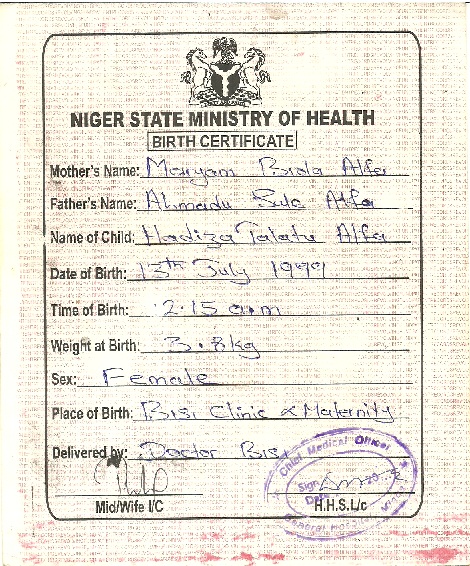 NIGER STATE MINISTRY OF HEALTH
BIRTH CERTIFICATE
Mother's Name: Maryam Bida Alfa
Father's Name: Ahmadu Sule Alfa
Name of Child: Hadiza Talatu Alfa
Date of Birth: 13th July 1999
Time of Birth: 2.15 a.m
Weight at Birth: 3.8kg
Sex: Female
Place of Birth: Bisi Clinic & Maternity
Delivered by: Doctor Bisi
Chief Medical Officer
Sign
Date
General Hospital
Mid/Wife I/C H.H.S.L/c